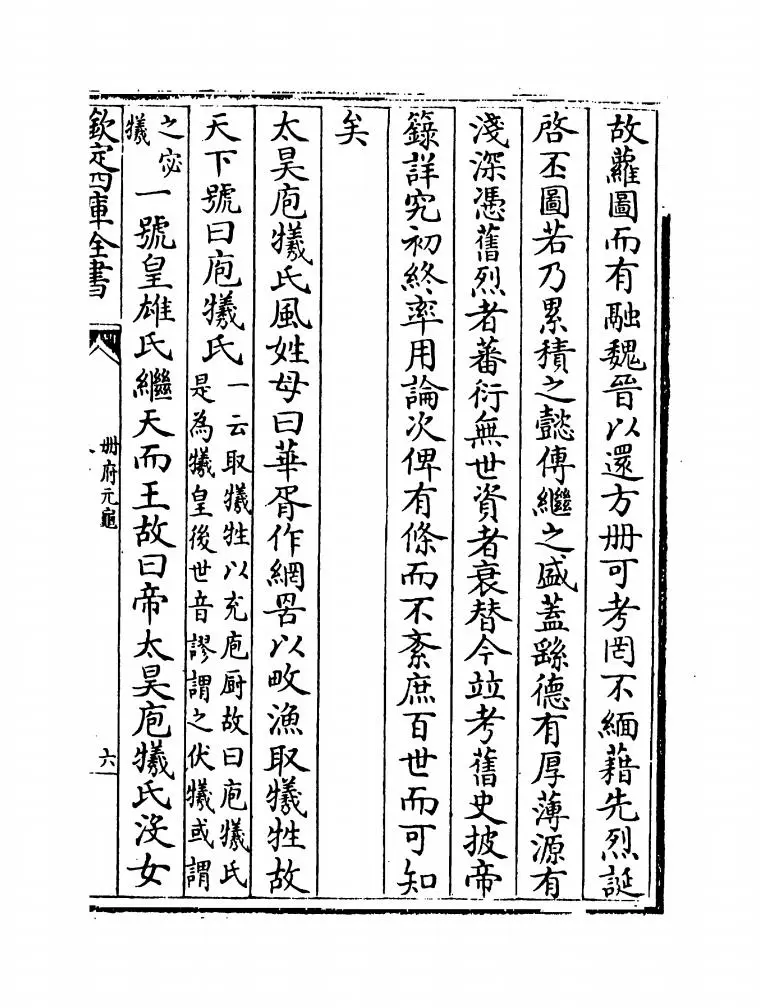 故蘿圖而有融魏晉以還方冊可考罔不緬藉先烈誕
啓丕圖若乃累積之懿傳繼之盛蓋繇德有厚薄源有
淺深憑舊烈者蕃衍無世資者衰替今竝考舊史披帝
籙詳究初終率用論次俾有條而不紊庶百世而可知
矣
太昊庖犧氏風姓母曰華胥作網罟以畋漁取犧牲故
天下號曰庖犧氏一云取犧牲以充庖厨故曰庖犧氏
是為犧皇後世音謬謂之伏犧或謂
之宓
犧一號皇雄氏繼天而王故曰帝太昊庖犧氏沒女
欽定四庫全書
冊府元龜
六